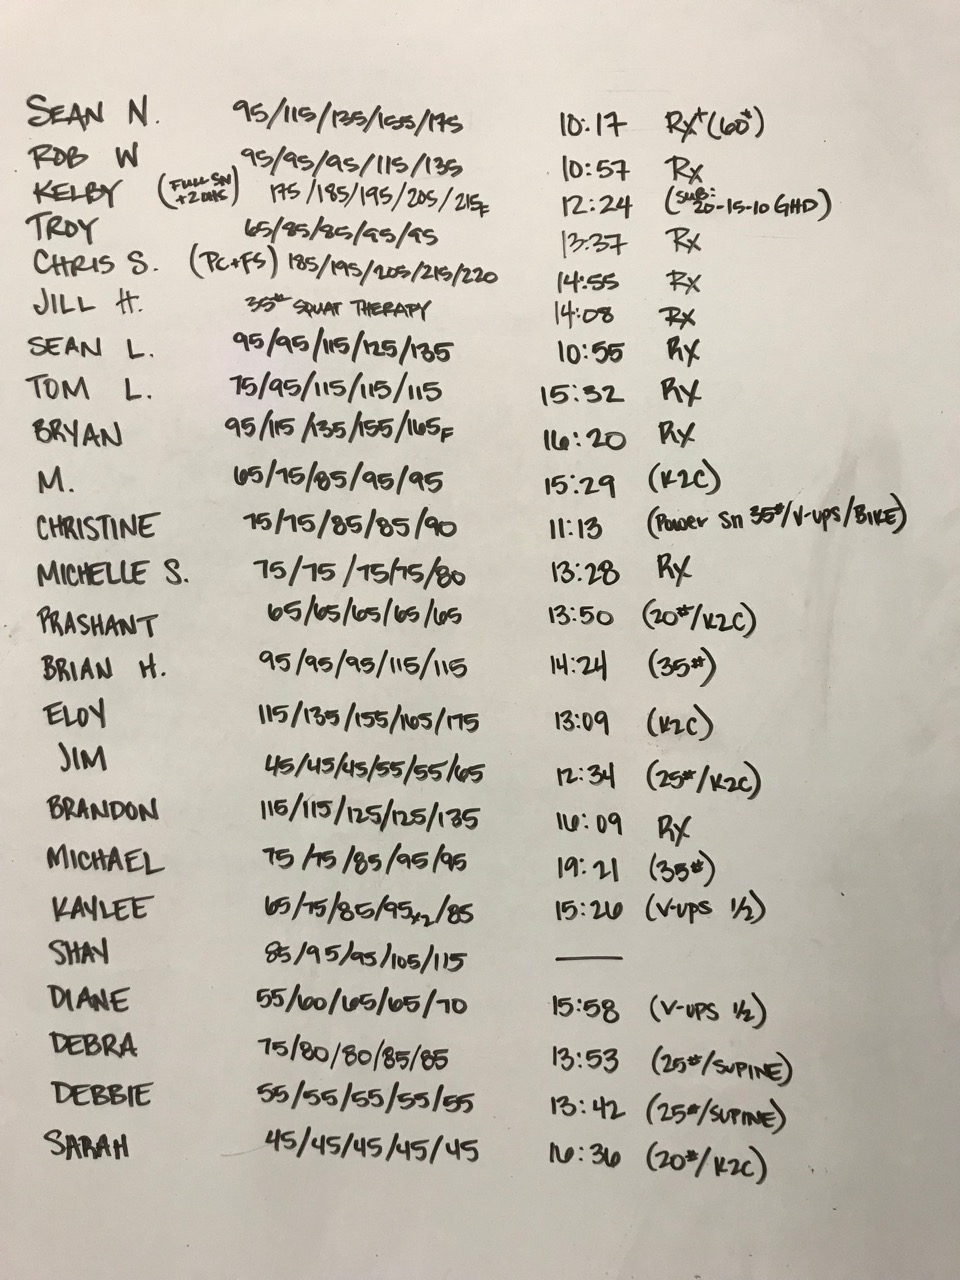 SEAN N. 95/115/135/155/175 10:17 Rx+(60#)
ROB W 95/95/95/115/135 10:57 Rx
KELBY (FULL SN +2 OHS) 175/185/195/205/215F 12:24 (SUB: 20-15-10 GHD)
TROY 65/85/85/95/95 13:37 Rx
CHRIS S. (PC+FS) 185/195/205/215/220 14:55 Rx
JILL H. 35# SQUAT THERAPY 14:08 Rx
SEAN L. 95/95/115/125/135 10:55 Rx
TOM L. 75/95/115/115/115 15:32 Rx
BRYAN 95/115/135/155/165F 16:20 Rx
M. 65/75/85/95/95 15:29 (K2C)
CHRISTINE 75/75/85/85/90 11:13 (Power Sn 35#/V-UPS/BIKE)
MICHELLE S. 75/75/75/75/80 13:28 Rx
PRASHANT 65/65/65/65/65 13:50 (20#/K2C)
BRIAN H. 95/95/95/115/115 14:24 (35#)
ELOY 115/135/155/165/175 13:09 (K2C)
JIM 45/45/45/55/55/65 12:34 (25#/K2C)
BRANDON 115/115/125/125/135 16:09 Rx
MICHAEL 75/75/85/95/95 19:21 (35#)
KAYLEE 65/75/85/95x2/85 15:26 (V-UPS 1/2)
SHAY 85/95/95/105/115 —
DIANE 55/60/65/65/70 15:58 (V-UPS 1/2)
DEBRA 75/80/80/85/85 13:53 (25#/SUPINE)
DEBBIE 55/55/55/55/55 13:42 (25#/SUPINE)
SARAH 45/45/45/45/45 16:36 (20#/K2C)